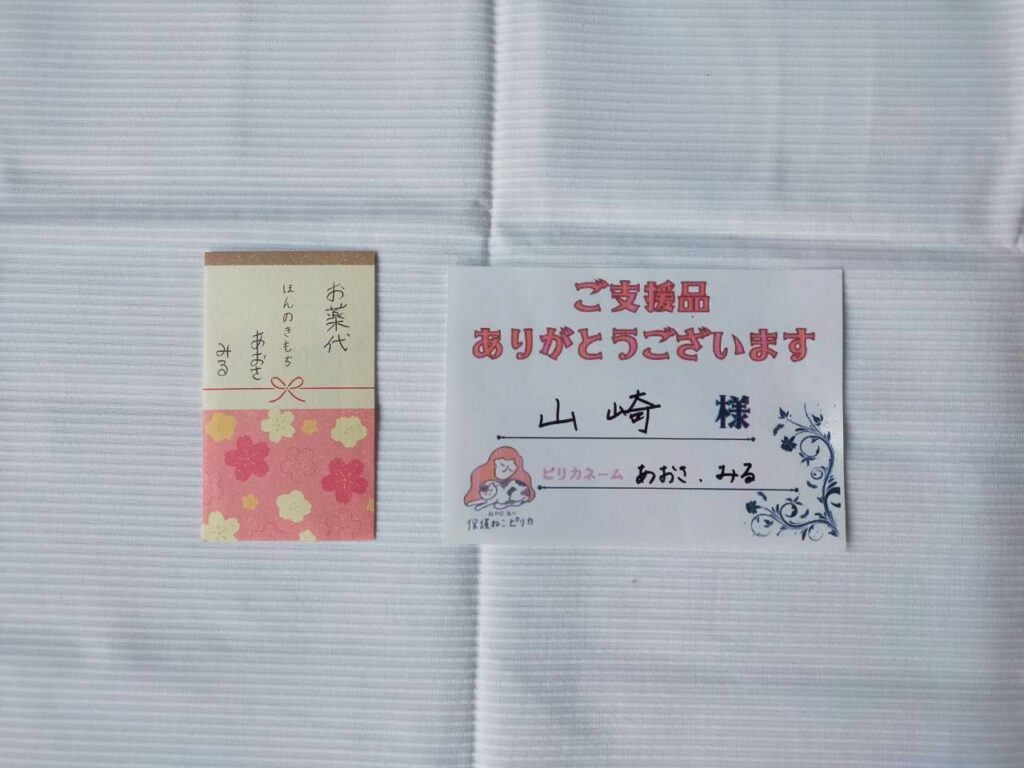 お薬代
ほんのきもち
あおさ
みる
ご支援品
ありがとうございます
山崎 様
ピリカネーム あおさ.みる
保護ねこピリカ